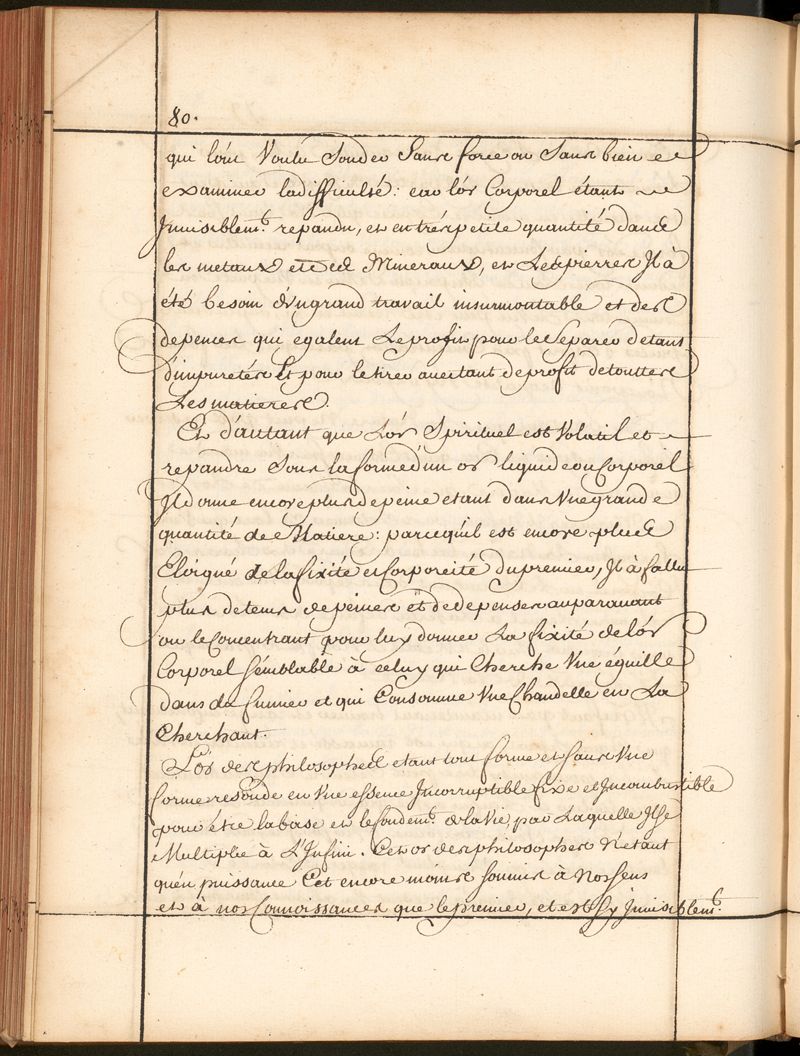 80.
qui l'ont Voulu Sonder Sans force ou Sans bien
examiner la difficulté: car l'ór Corporel étant
Jnuisiblem.t repandu, et en tréspetite quantité dans
les metaux et ces Mineraux, et Les pierres Jl à
été besoin d'Vn grand travail insurmontable et des
depenses qui egalent Le profit pour le Separer de tant
d'impuretés Et pour le tirer auec tant de profit de touttes
Les matieres.
Et d'autant que L'ór Spirituel est Volatil et
repandre Sous la forme d'un or liquide ou Corporel
Jl donne encore plus de peine etant dans Vne grande
quantité de Matiere: parcequ'il est encore plus
Eloigné de la fixité et Corporeité du premier, Jl à fallu
plus de tems de peines et de depenses auparauant
ou le Concentrant pour luy donner La fixité de l'ór
Corporel semblable à celuy qui Cherche Vne éguille
dans du fumier et qui Consomme Vne Chandelle en La
Cherchant.
L'ór des philosophes etant tout forme et sans Vne
forme reside en Vne essence Jncorruptible fixe et Jncombustible
pour être la base et le fondem.t de la Vie, par Laquelle Jl Se
Multiplie à L'Jnfini. Cet or des philosophes N'etant
qu'en puissance Est encore moins soumis à Nos sens
et à nos Connoissances que le premier, et est Sy Jnuisiblem.t